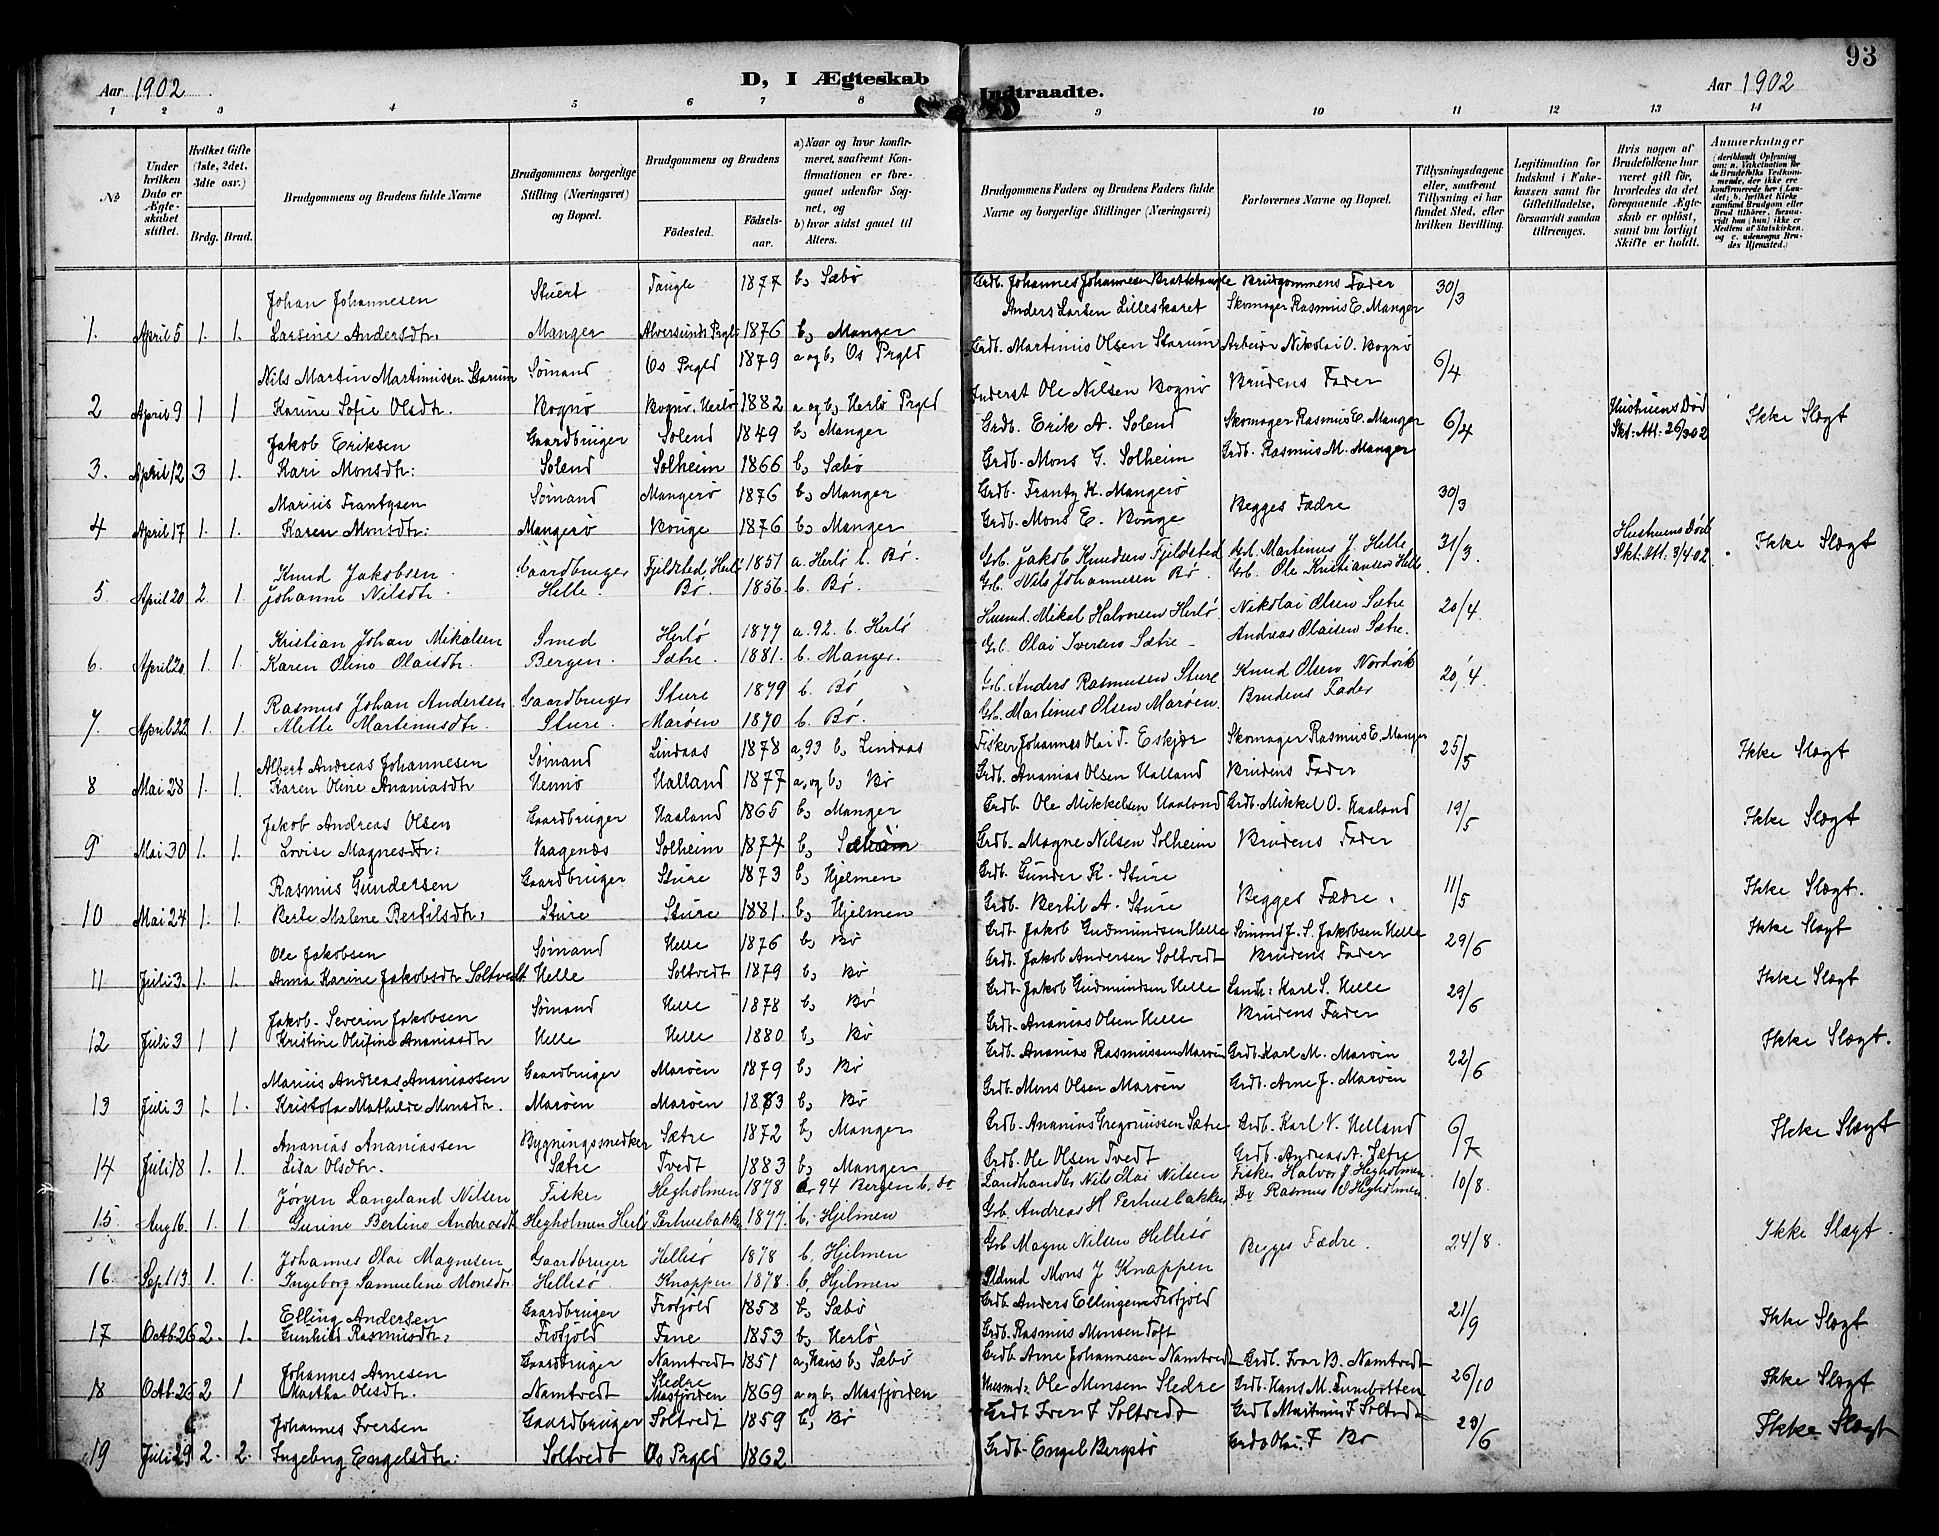 93
Aar 1902
D, I Ægteskab
Indtraadte.
Aar 1902
1 2 3 4 5 6 7 8 9 10 11 12 13 14
No
Under hvilken Dato er Ægteskabet stiftet.
Hvilket Gifte (1ste, 2det, 3die osv.)
Brdg. Brud.
Brudgommens og Brudens fulde Navne
Brudgommens borgerlige Stilling (Næringsvei) og Bopæl.
Brudgommens og Brudens
Födested. Födselsaar.
a) Naar og hvor konfirmeret, saafremt Konfirmationen er foregaaet udenfor Sognet, og
b) hvor sidst gaaet til Alters.
Brudgommens Faders og Brudens Faders fulde Navne og borgerlige Stillinger (Næringsvei)
Forlovernes Navne og Bopæl.
Tillysningsdagene eller, saafremt Tillysning ei har fundet Sted, efter hvilken Bevilling.
Legitimation for Indskud i Enkekassen samt for Giftetilladelse, forsaavidt saadan tiltrænges.
Hvis nogen af Brudefolkene har været gift før, hvorledes da det foregaaende Ægteskab er opløst, samt om lovligt Skifte er holdt.
Anmerkninger
Johan Johannesen Stuert Tangle 1877 b, Sæbø Grdb. Johannes Johannesen Brattetangle Brudgommens Fader 30/3
1. April 5 1. 1. Larsine Andersdtr. Manger Alversunds Prgld 1876 b, Manger Anders Larsen Lilleskaret Skomager Rasmus E. Manger
Nils Martin Martinussen Starum Sømand Os Prgld 1879 a og b, Os Prgld Grdb. Martinus Olsen Starum Arbeider Nikolai O. Bognø 6/4
2 April 9 1 1 Karine Sofie Olsdtr. Bognø Bognø. Herlø 1882 a og b, Herlø Prgld Inderst Ole Nilsen Bognø Brudens Fader
Jakob Eriksen Gaardbruger Solend 1849 b, Manger Grdb. Erik A. Solend Skomager Rasmus E. Manger 6/4 Hustruens Død Skt. Att. 26/3 02 Ikke Slægt
3. April 12 3 1. Kari Monsdtr: Solend Solheim 1866 b, Sæbø Grdb. Mons G. Solheim Grdb. Rasmus M. Manger
Marius Frantzsen Sømand Mangerø 1876 b, Manger Grdb. Frantz K. Mangerø Begges Fædre 30/3
4 April 17 1. 1. Karen Monsdtr: Mangerø Bouge 1876 b, Manger Grdb. Mons E. Bouge
Knud Jakobsen Gaardbruger Fjeldsted, Herlø 1851 a. Herlø b. Bø. Grb. Jakob Knudsen Fjeldsted Grb. Martinus J. Helle 31/3. Hustruens Død Skt. Att. 3/4 02. Ikke Slægt
5 April 20 2. 1. Johanne Nilsdtr. Helle. Bø. 1856. b. Bø. Grb. Nils Johannesen Bø. Grb. Ole Kristiansen Helle.
Kristian Johan Mikalsen Smed Herlø 1877 a. 92. b. Herlø Husmd. Mikal Halvorsen Herlø Nikolai Olsen Sætre 20/4
6. April 20 1. 1. Karen Oline Olaisdtr. Bergen. Sætre. 1881. b. Manger. Grb. Olai Iversen Sætre Andreas Olaisen Sætre.
Rasmus Johan Andersen Gaardbruger Sture 1879 b. Bø Grb. Anders Rasmussen Sture Knud Olsen Nordvik 20/4.
7. April 22 1. 1. Alette Martinusdtr. Sture. Marøen 1870 b. Bø. Grb. Martinus Olsen Marøen. Brudens Fader
Albert Andreas Johannesen Sømand Lindaas 1878 a, 93 b, Lindaas Fisker Johannes Olai T. Eskjær Skomager Rasmus E. Manger 25/5 Ikke Slægt
8 Mai 28 1. 1. Karen Oline Ananiasdtr Uennø Halland 1877 a, og b, Bø Grdb. Ananias Olsen Halland Brudens Fader
Jakob Andreas Olsen Gaardbruger Haaland 1865 b, Manger Grdb. Ole Mikkelsen Haaland Grdb. Mikkel O. Haaland 19/5 Ikke Slægt
9 Mai 30 1. 1. Lovise Magnesdtr: Vaagenæs Solheim 1874 b, Grdb. Magne Nilsen Solheim Brudens Fader
Rasmus Gundersen Gaardbruger Sture 1873 b, Hjelmen Grdb. Gunder K. Sture Begges Fædre. 11/5 Ikke Slægt.
10 Mai 24 1. 1. Berte Malene Bertilsdtr. Sture Sture 1881. b, Hjelmen Grdb. Bertil A. Sture
Ole Jakobsen Sømand Helle 1876 b, Bø Grdb. Jakob Gudmundsen Helle Sømand J. S. Jakobsen Helle 29/6 Ikke Slægt
11 Juli 3. 1. 1. Anna Karine Jakobsdtr. Soltvedt Helle Soltvedt 1879 b, Bø Grdb. Jakob Andersen Soltvedt Brudens Fader
Jakob Severin Jakobsen Sømand Helle 1878 b, Bø Grdb. Jakob Gudmundsen Helle Landh: Karl S. Helle 29/6 Ikke Slægt
12 Juli 3 1 1 Kristine Olufine Ananiasdtr Helle Helle 1880 b, Bø Grdb. Ananias Olsen Helle Brudens Fader
Marius Andreas Ananiassen Gaardbruger Marøen 1879 b, Bø Grdb. Ananias Rasmussen Marøen Grdb. Karl M. Marøen 22/6 Ikke Slægt.
13 Juli 3 1. 1. Kristofa Mathilde Monsdtr. Marøen Marøen 1883 b, Bø Grdb. Mons Olsen Marøen Grdb. Arne J. Marøen
Ananias Ananiassen Bygningssnedker Sætre 1872 b, Manger Grdb. Ananias Gregoriussen Sætre Grdb. Karl V. Helland 6/7 Ikke Slægt
14 Juli 18 1. 1. Lisa Olsdtr. Sætre Tvedt 1883 b, Manger Grdb. Ole Olsen Tvedt Grdb. Andreas A. Sætre
Jørgen Langeland Nilsen Fisker Hegholmen 1878 a, 94 Bergen b. do Landhandler Nils Olai Nilsen Fisker Halvor J Hegholmen 10/8.
15 Aug 16. 1. 1 Gurine Bertine Andreasdt Hegholmen Herlø Perhusbakke 1877. b. Hjelmen Grb. Andreas H Perhusbakken Do Rasmus O Hegholmen.
Johannes Olai Magnesen Gaardbruger Hellesø 1878 b, Hjelmen Grb Magne Nilsen Hellesø Begges Fædre. 24/8. Ikke Slægt.
16. Sept 13. 1. 1. Ingeborg Samueline Monsdtr Hellesø Knappen 1878. b, Hjelmen Mons J Knappen
Elling Andersen Gaardbruger Frotjold 1858 b, Sæbø Grdb. Anders Ellingsen Frotjold 21/9 Ikke Slægt
17 Octb. 26 2. 1. Gunhild Rasmusdtr: Frotjold Fane 1853 b, Herlø Grdb. Rasmus Monsen Toft
Johannes Arnesen Gaardbruger Namtvedt 1851 a, Haus b, Sæbø Grdb. Arne Johannesen Namtvedt Grdb. Ivar B. Namtvedt 26/10 Ikke Slægt
18 Octb. 26 2 1 Martha Olsdtr. Namtvedt Sledre Masfjorden 1869 a og b, Masfjorden Husmd: Ole Monsen Sledre Grdb. Hans M. Tunebotten
Johannes Iversen Gaardbruger Soltvedt 1859 b, Bø Grdb Iver J Soltvedt Grdb Martinus J Soltvedt 29/6 Ikke Slægt
19 Juli 29 2. 2. Ingebrg Engelsdtr: Soltvedt Os Prgld 1862 Grdb. Engel Bergstø Grdb Olai J Bø